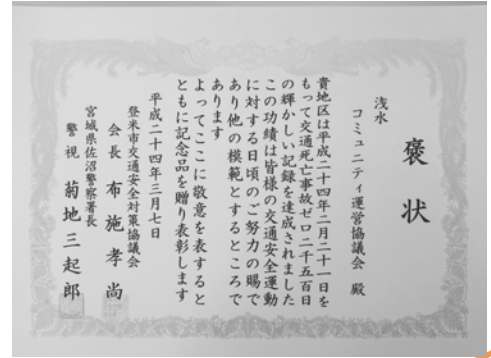 褒状
浅水
コミュニティ運営協議会 殿
貴地区は平成二十四年二月二十一日を
もって交通死亡事故ゼロ二千五百日
の輝かしい記録を達成されました
この功績は皆様の交通安全運動
に対する日頃のご努力の賜で
あり他の模範とするところで
あります
よってここに敬意を表すると
ともに記念品を贈り表彰します
平成二十四年三月七日
登米市交通安全対策協議会
会長 布施孝尚
宮城県佐沼警察署長
警視 菊地三起郎